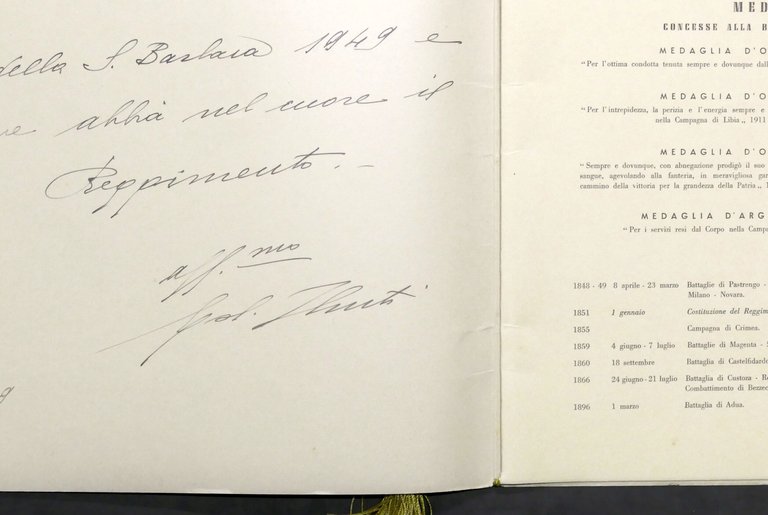 della S. Barbara 1949 e
abbia nel cuore il
Reggimento. -
aff.mo
Col.
9
MED
CONCESSE ALLA B
MEDAGLIA D'O
"Per l'ottima condotta tenuta sempre e dovunque dall
MEDAGLIA D'O
"Per l'intrepidezza, la perizia e l'energia sempre e
nella Campagna di Libia,, 1911
MEDAGLIA D'O
"Sempre e dovunque, con abnegazione prodigò il suo
sangue, agevolando alla fanteria, in meravigliosa gar
cammino della vittoria per la grandezza della Patria,,
MEDAGLIA D'ARG
"Per i servizi resi dal Corpo nella Campa
1848 - 49 8 aprile - 23 marzo Battaglie di Pastrengo -
Milano - Novara.
1851 1 gennaio Costituzione del Reggim
1855 Campagna di Crimea.
1859 4 giugno - 7 luglio Battaglie di Magenta -
1860 18 settembre Battaglia di Castelfidardo
1866 24 giugno - 21 luglio Battaglia di Custoza - R
Combattimento di Bezzec
1896 1 marzo Battaglia di Adua.